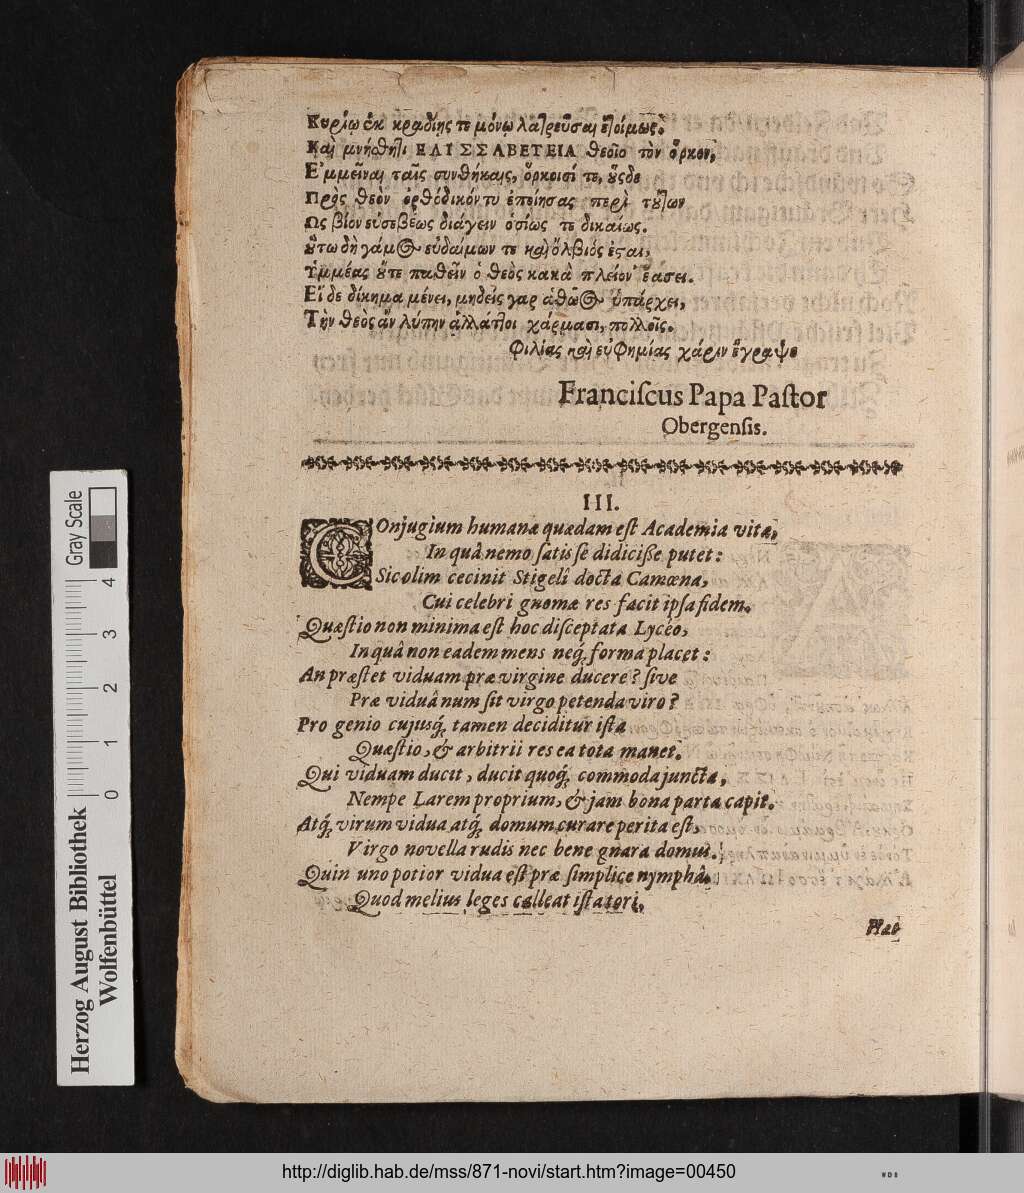 Κυρίῳ ἐκ κραδίης τε μόνῳ λατρεῦσαι ἑτοίμως.
Καὶ μνήθητι ΕΛΙΣΣΑΒΕΤΕΙΑ θεοῖο τὸν ὅρκον,
Ἐμμεῖναι ταῖς συνθήκαις, ὅρκοισί τε, οὕσδε
Πρὸς θεὸν ὀρθόδικόν τυ ἐποίησας περὶ τούτων
Ως βίον εὐσεβέως διάγειν ὁσίως τε δικαίως.
οὕτω δὴ γάμος εὐδαίμων τε καὶ ὄλβιός ἐσται,
Ὑμμέας οὔτε παθεῖν ὁ θεὸς κακὰ πλείον' ἐάσει.
Εἴ δε δίκημα μένει, μηδείς γαρ ἀθῶος ὑπάρχει,
Τὴν θεὸς ἂν λύπην ἀλλάττοι χάρμασι, πολλοῖς.
Φιλίας καὶ εὐφημίας χάριν ἔγραψε
Franciſcus Papa Paſtor
Obergenſis.
III.
COnjugium humanæ quædam eſt Academia vitæ,
In quâ nemo ſatis ſe didiciße putet:
Sic olim cecinit Stigelî docta Camœna,
Cui celebri gnomæ res facit ipſa fidem.
Quæſtio non minima eſt hoc diſceptata Lycéo,
In quâ non eadem mens neq́; forma placet:
An præſtet viduam præ virgine ducere? ſive
Præ viduâ num ſit virgo petenda viro?
Pro genio cujusq́; tamen deciditur iſta
Quæſtio, & arbitrii res ea tota manet.
Qui viduam ducit, ducit quoq́; commoda juncta,
Nempe Larem proprium, & jam bona parta capit.
Atq́; virum vidua atq́; domum curare perita eſt,
Virgo novella rudis nec bene gnara domus.
Quin uno potior vidua eſt præ ſimplice nymphâ,
Quod melius leges calleat iſta tori,
Hac
Herzog August Bibliothek
Wolfenbüttel
0 1 2 3 4
Gray Scale
http://diglib.hab.de/mss/871-novi/start.htm?image=00450
WDB